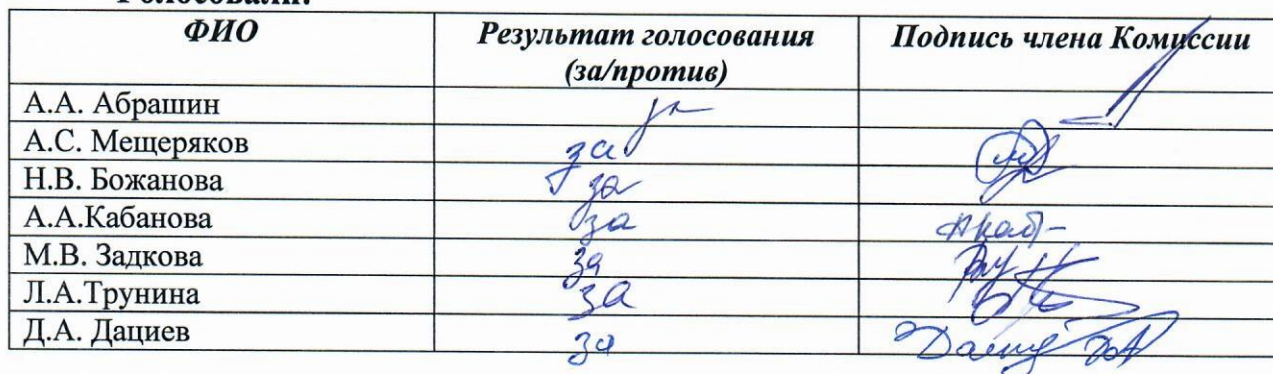 Голосовали:
ФИО Результат голосования (за/против) Подпись члена Комиссии
А.А. Абрашин за
А.С. Мещеряков за
Н.В. Божанова за
А.А.Кабанова за
М.В. Задкова за
Л.А.Трунина за
Д.А. Дациев за